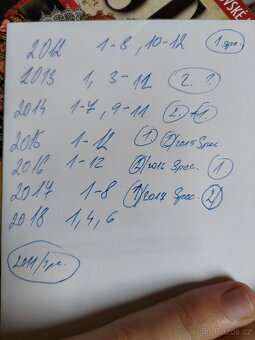 2012 1-8, 10-12 1 spec.
2013 1, 3-12 2. 1
2014 1-7, 9-11 2. 1
2015 1-12 1 2/2015 Spec.
2016 1-12 2/2016 Spec. 1.
2017 1-8 1/2017 Spec. 2
2018 1, 4, 6
2011/Spec.
Bazos.cz